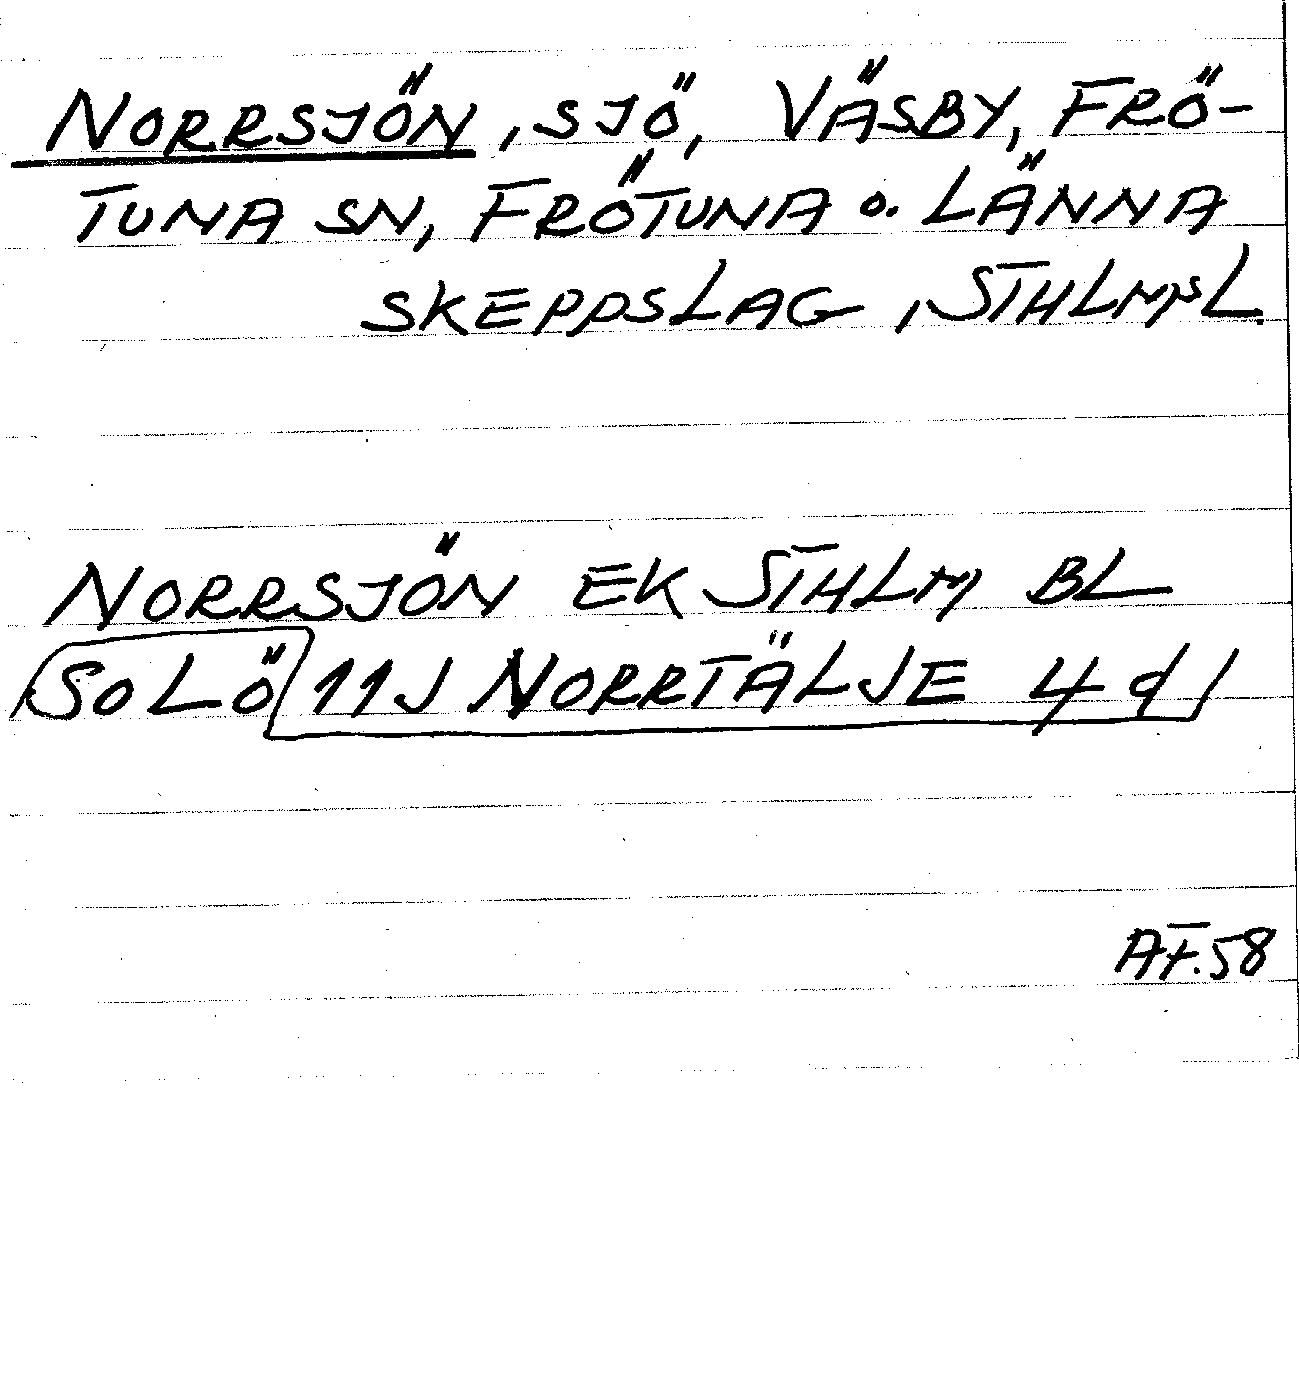 NORRSJÖN, SJÖ, VÄSBY, FRÖ-
TUNA SN, FRÖTUNA O. LÄNNA
SKEPPSLAG, STHLMSL.
NORRSJÖN EK STHLM BL
SOLÖ 11J NORRTÄLJE 4d
AF.58